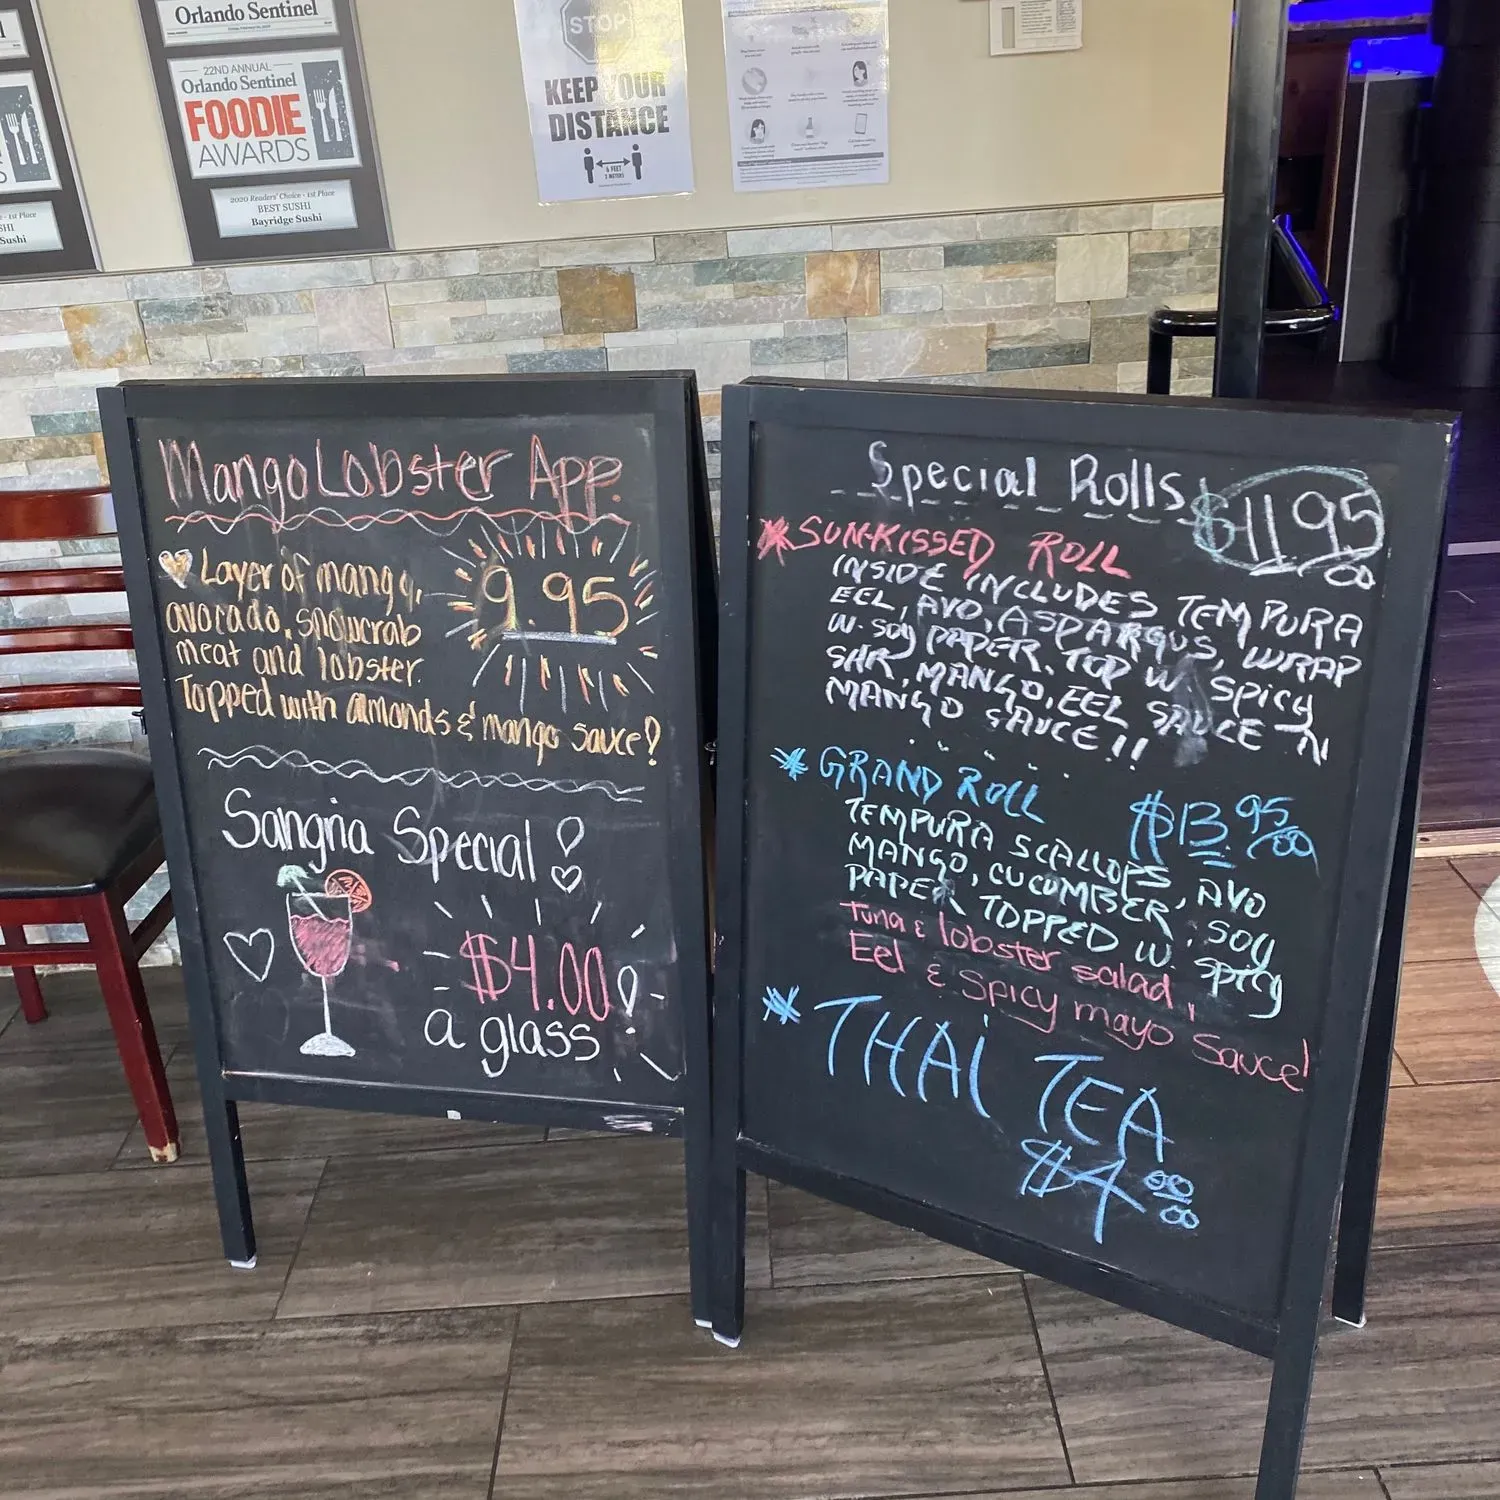 Orlando Sentinel
22ND ANNUAL
Orlando Sentinel
FOODIE
AWARDS
2020 Readers' Choice - 1st Place
BEST SUSHI
Bayridge Sushi
Sushi
STOP
KEEP YOUR
DISTANCE
6 FEET
2 METERS
Mango Lobster App.
Layer of mango,
avocado, snowcrab
meat and lobster.
Topped with almonds & mango sauce!
9.95
Sangria Special!
$4.00!
a glass
Special Rolls $11.95
SUN-KISSED ROLL
INSIDE INCLUDES TEMPURA
EEL, AVO, ASPARGUS, WRAP
W. SOY PAPER. TOP W. SPICY
SHR, MANGO, EEL SAUCE N
MANGO SAUCE!!
GRAND ROLL $13.95
TEMPURA SCALLOPS, AVO
MANGO, CUCUMBER, SOY
PAPER, TOPPED W. SPICY
tuna & lobster salad,
Eel & Spicy mayo Sauce!
THAI TEA
$4.00